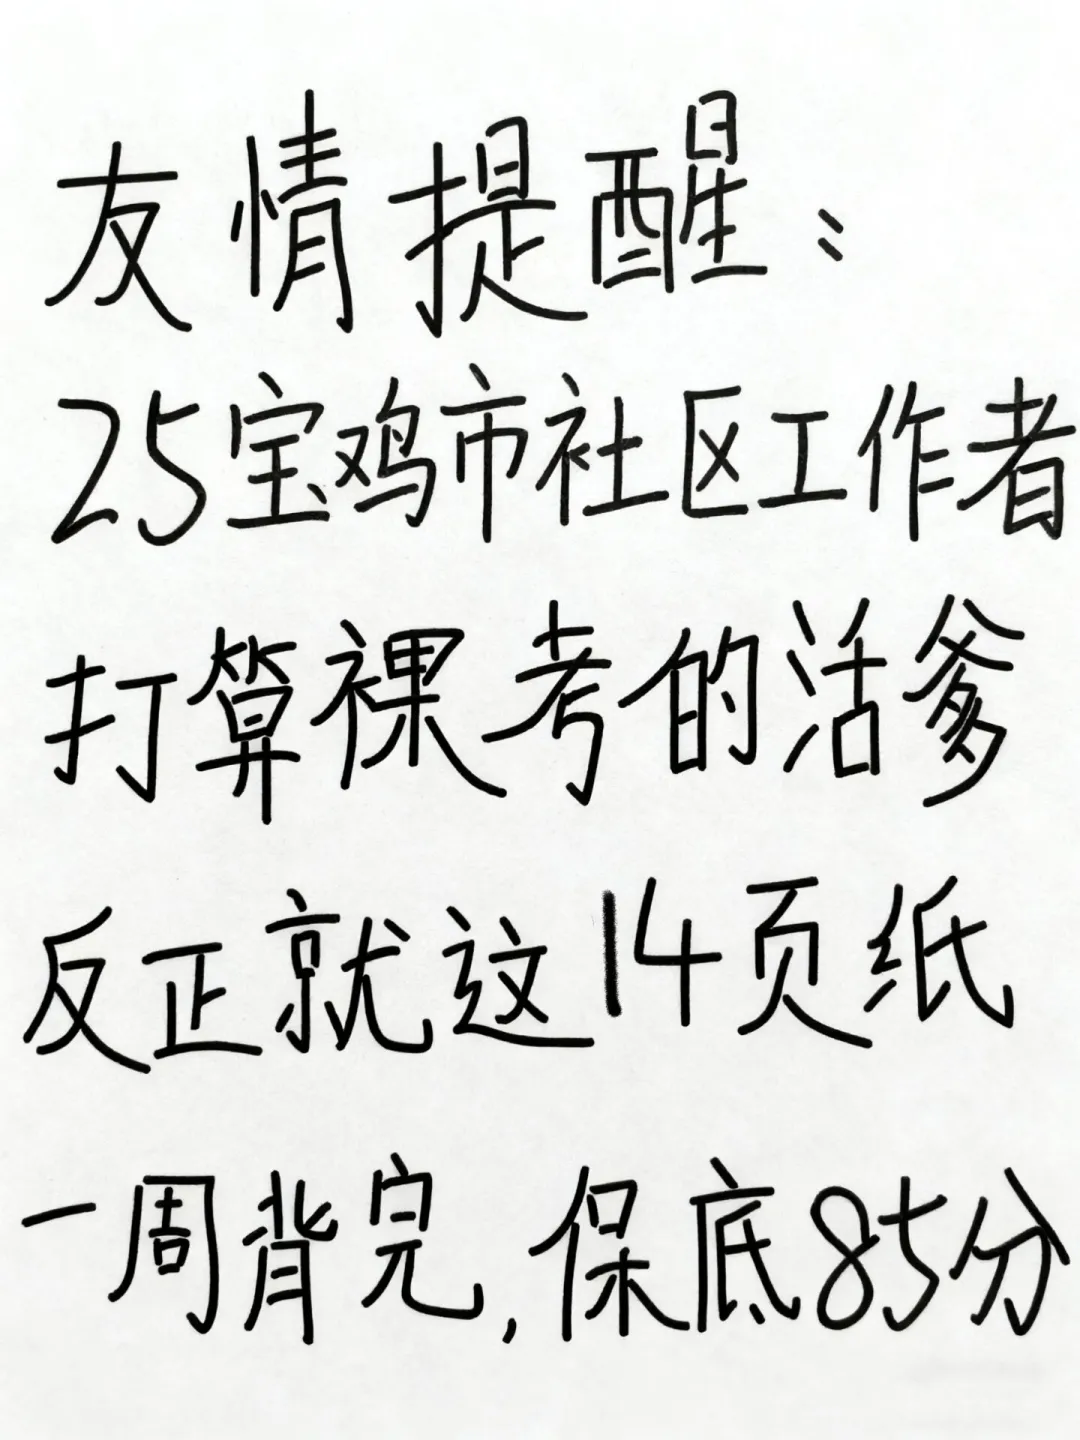 友情提醒：
25宝鸡市社区工作者
打算裸考的活爹
反正就这14页纸
一周背完,保底85分